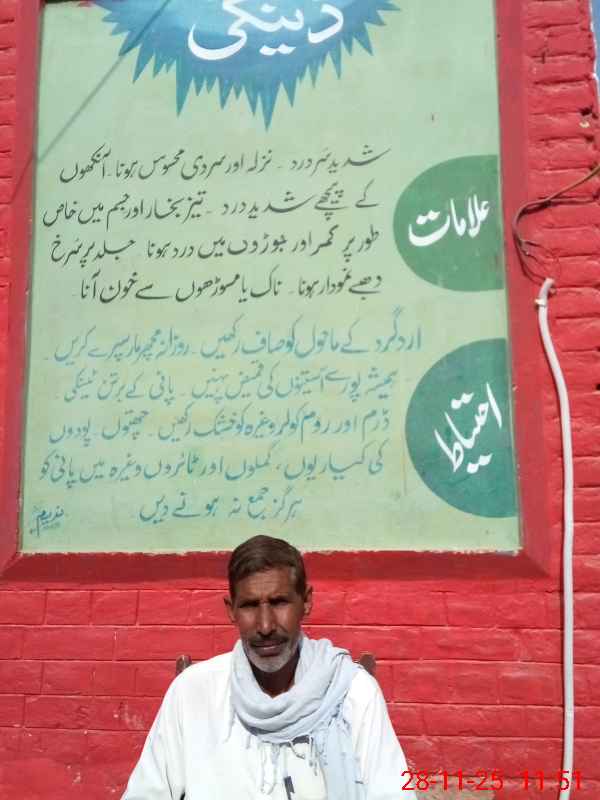 ڈینگی
علامات
شدید سر درد ۔ نزلہ اور سردی محسوس ہونا ۔ آنکھوں
کے پیچھے شدید درد ۔ تیز بخار اور جسم میں خاص
طور پر کمر اور جوڑوں میں درد ہونا ۔ جلد پر سرخ
دھبے نمودار ہونا ۔ ناک یا مسوڑھوں سے خون آنا ۔
احتیاط
ارد گرد کے ماحول کو صاف رکھیں ۔ روزانہ مچھر مار سپرے کریں ۔
ہمیشہ پورے آستینوں کی قمیض پہنیں ۔ پانی کے برتن ٹینکی ۔
ڈرم اور روم کولر وغیرہ کو خشک رکھیں ۔ چھتوں ۔ پودوں
کی کیاریوں ، گملوں اور ٹائروں وغیرہ میں پانی کو
ہرگز جمع نہ ہونے دیں ۔
ندیم
28-11-25 11:51